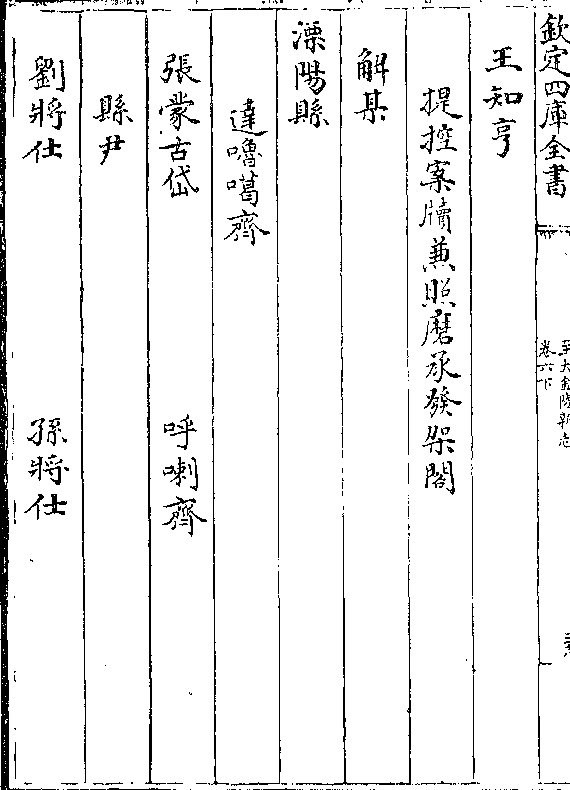 欽定四庫全書
至大金陵新志
卷六下
王知亨
提控案牘兼照磨承發架閣
解某
溧陽縣
達嚕噶齊
張蒙古岱 呼喇齊
縣尹
劉將仕 孫將仕